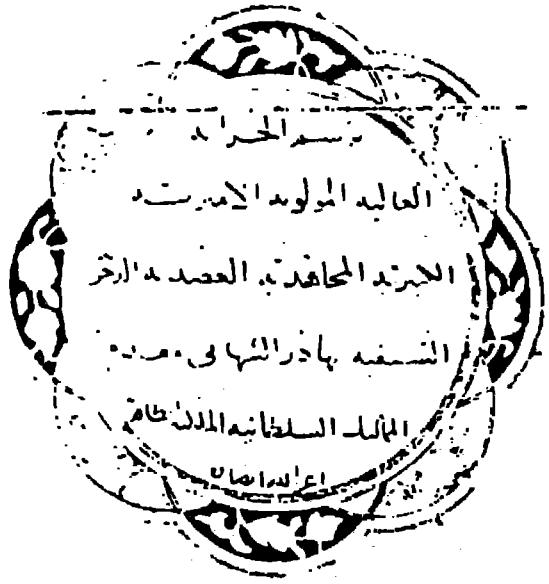 برسم الخزانه
العاليه المولويه الاميريه
الكبيريه المجاهديه العضديه
السيفيه بهادر الشهابي
المماليك السلطانيه الملكي
اعز الله انصاره